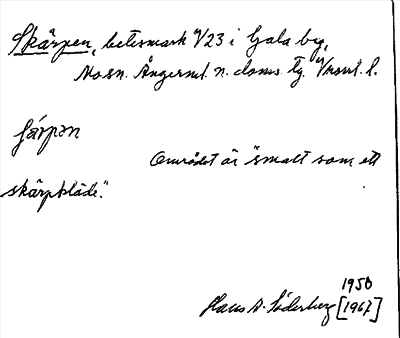 Skärpen, betesmark 9/23 i Gala by,
Nosn. Ångerml. n. doms. tg. V/norrl. l.
ʃärpən
Området är "smalt som ett
skärpkläde".
1950
Hans A. Söderberg [1967]